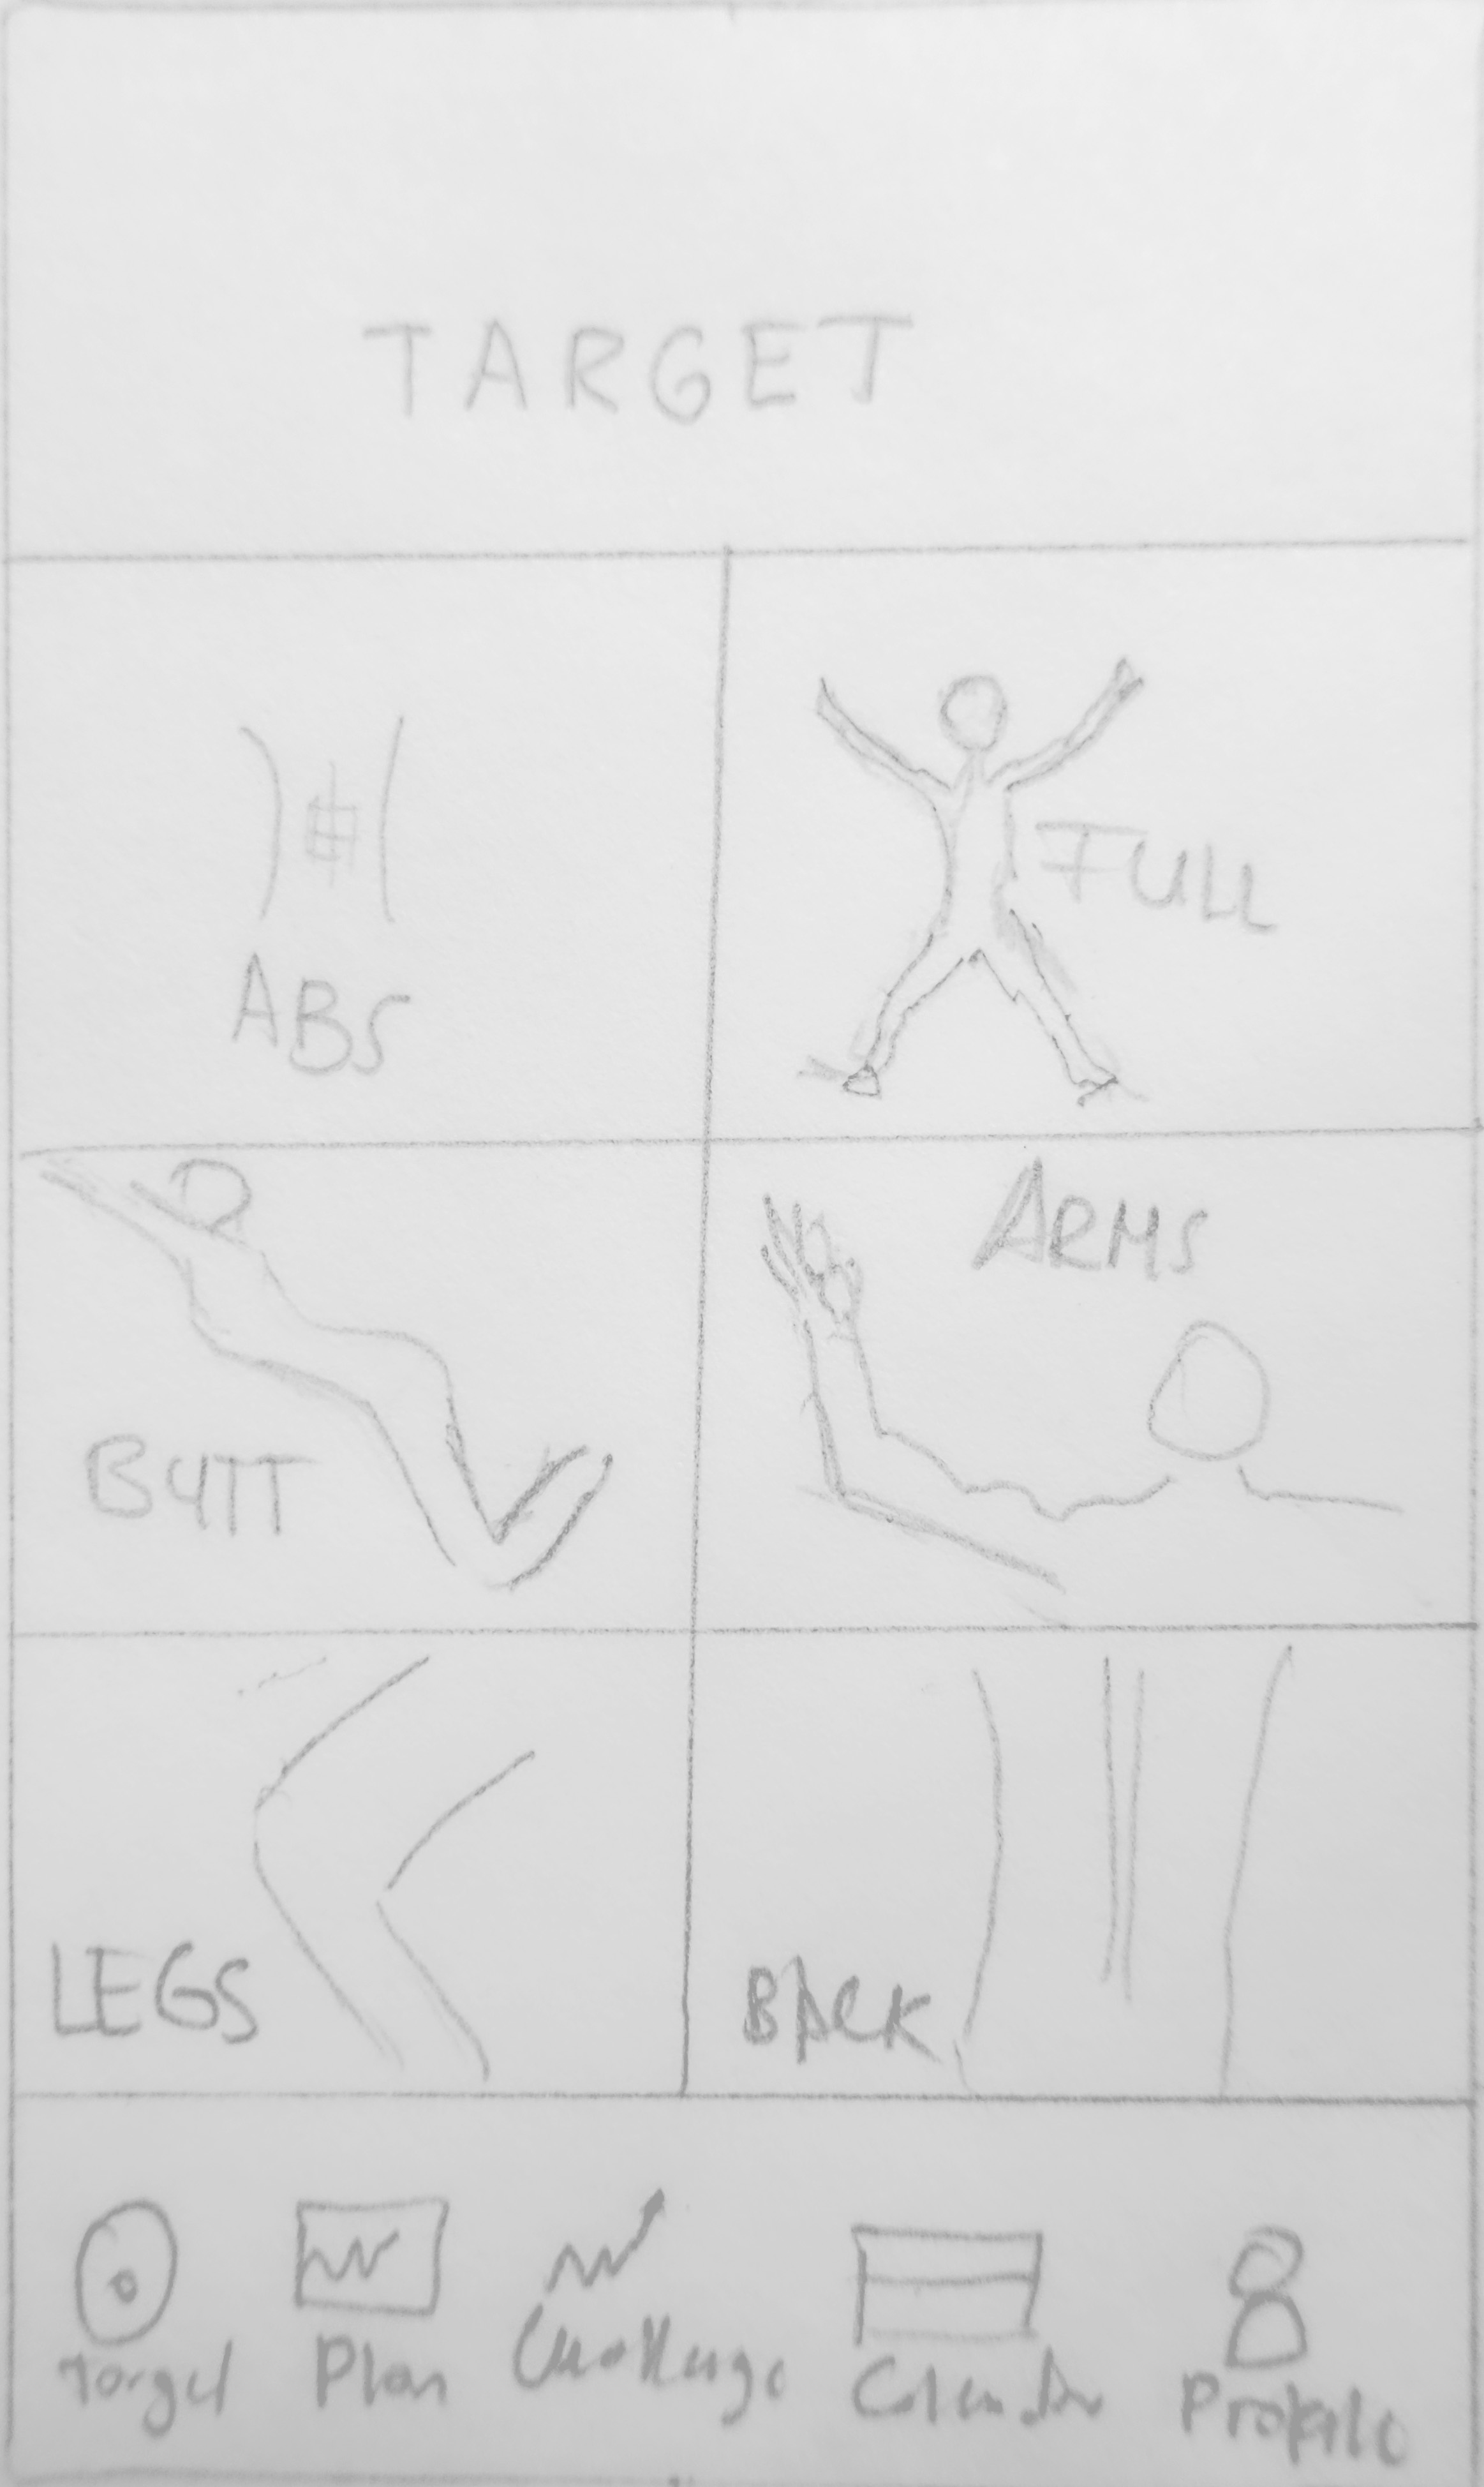 TARGET
ABS
FULL
BUTT
ARMS
LEGS
BACK
Target
Plan
Challenge
Calendar
Profile